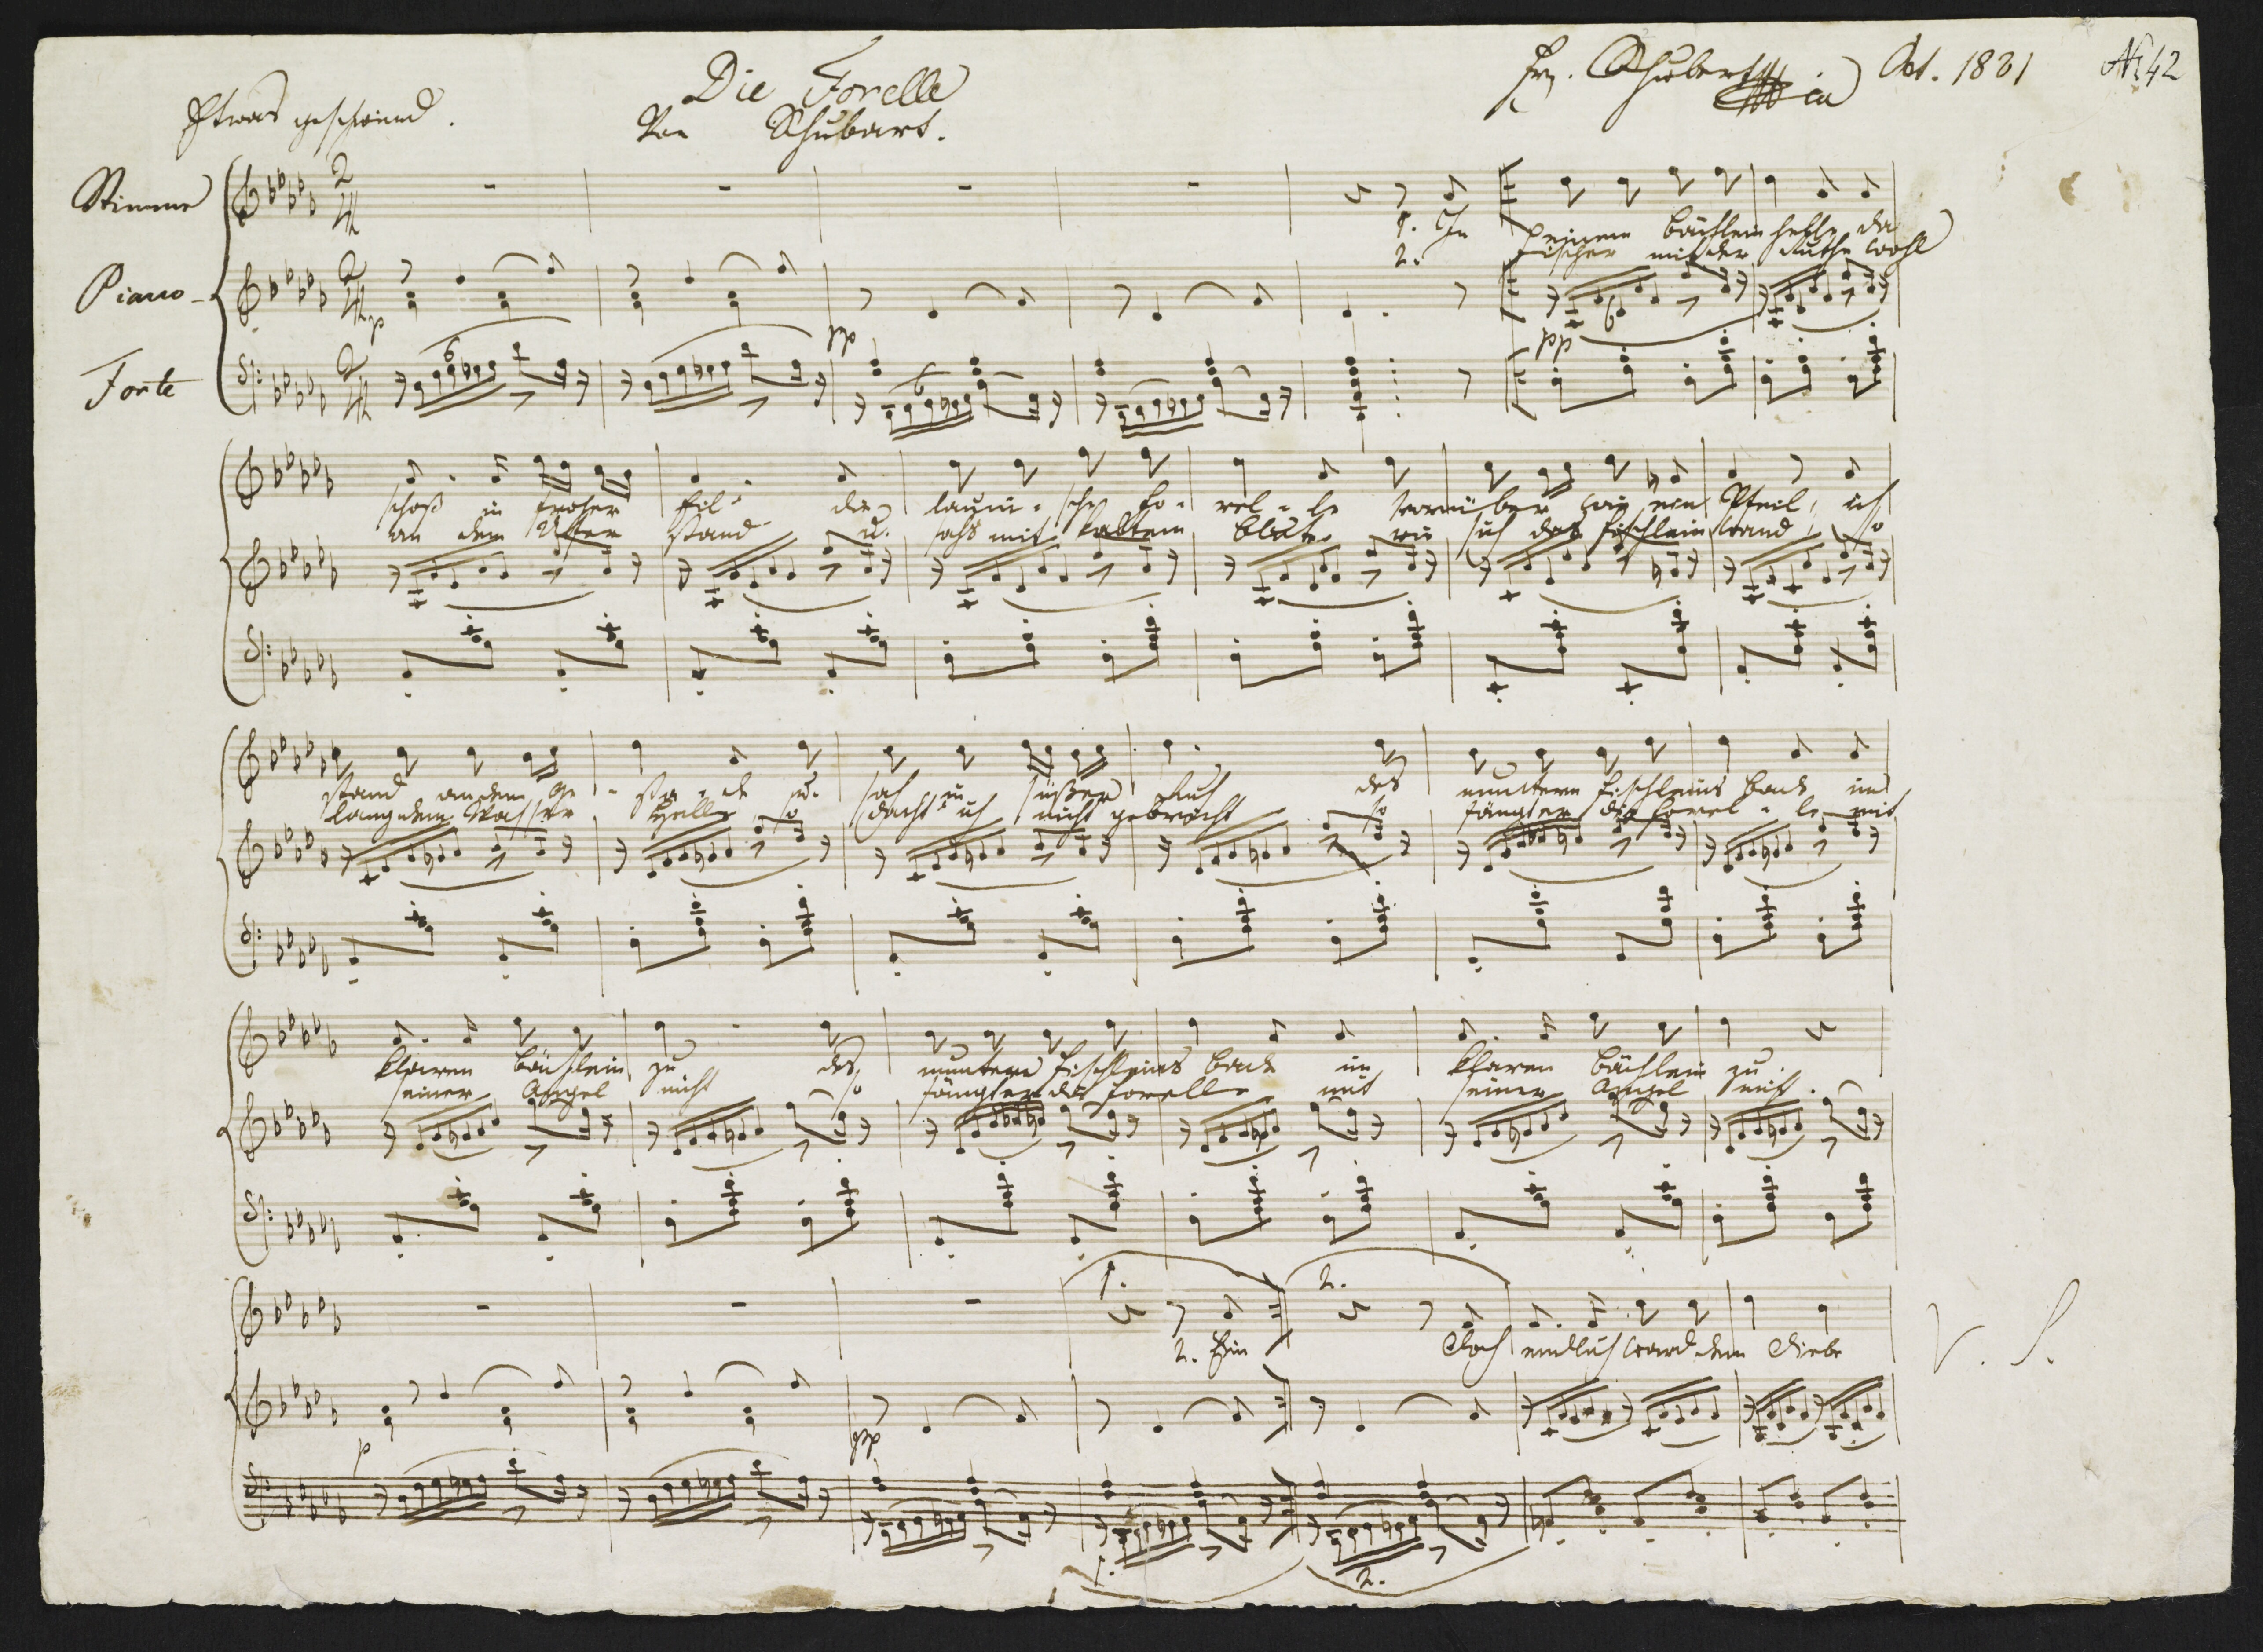 Die Forelle
Frz. Schubert mpia Oct. 1821
№ 42
Etwas geschwind.
Von Schubart.
Stimme
Piano-
Forte
1. In einem Bächlein helle da
2. Fischer mit der Ruthe wohl
p
6
pp
6
pp
6
schoß in froher Eil' die launische Forelle vorüber wie ein Pfeil, ich
an dem Ufer stand u. sah's mit kaltem Blute wie sich das Fischlein wand, so
stand an dem Gestade u. sah in süßer Ruh des muntern Fischleins Bade im
lang dem Wasser Helle so dacht' ich nicht gebricht so fängt er die Forelle mit
klaren Bächlein zu des muntern Fischleins Bade im klaren Bächlein zu.
seiner Angel nicht so fängt er die Forelle mit seiner Angel nicht.
1.
2.
2. Ein
Doch endlich ward dem Diebe
V. S.
p
pp
1.
2.